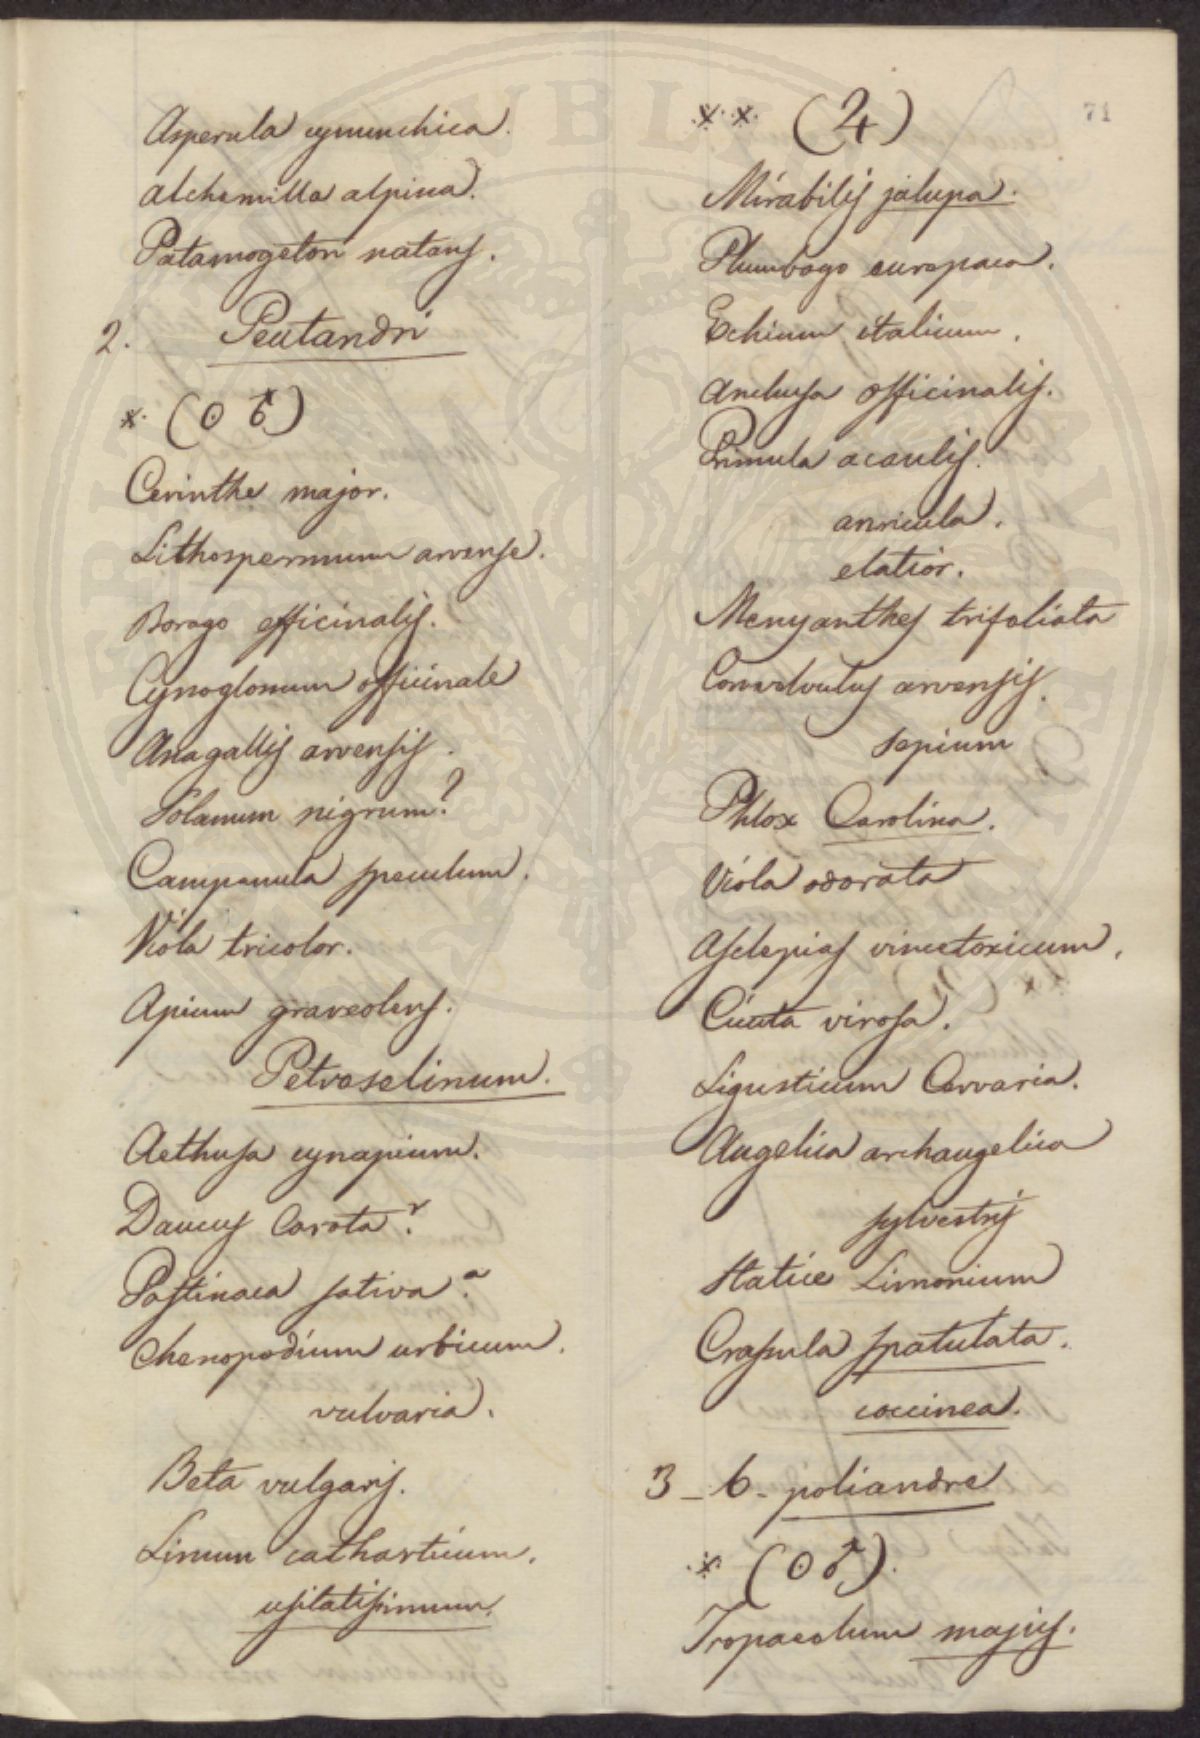 Asperula cynanchica.
Alchemilla alpina.
Potamogeton natans.
2. Pentandri
* (☉ ♂)
Cerinthe major.
Lithospermum arvense.
Borago officinalis.
Cynoglossum officinale
Anagallis arvensis.
Solanum nigrum?
Campanula speculum.
Viola tricolor.
Apium graveolens.
Petroselinum.
Aethusa cynapium.
Daucus Carota?
Pastinaca sativa?
Chenopodium urbicum.
vulvaria.
Beta vulgaris.
Linum catharticum.
usitatissimum.
71
** (♃)
Mirabilis jalapa.
Plumbago europaea.
Echium italicum.
Anchusa officinalis.
Primula acaulis.
auricula.
elatior.
Menyanthes trifoliata
Convolvulus arvensis.
sepium
Phlox Carolina.
Viola odorata
Asclepias vincetoxicum.
Cicuta virosa.
Ligusticum Cervaria.
Angelica archangelica
sylvestris
Statice Limonium
Crassula spatulata.
coccinea.
3 - 6 - poliandre
* (☉ ♂).
Tropaeolum majus.